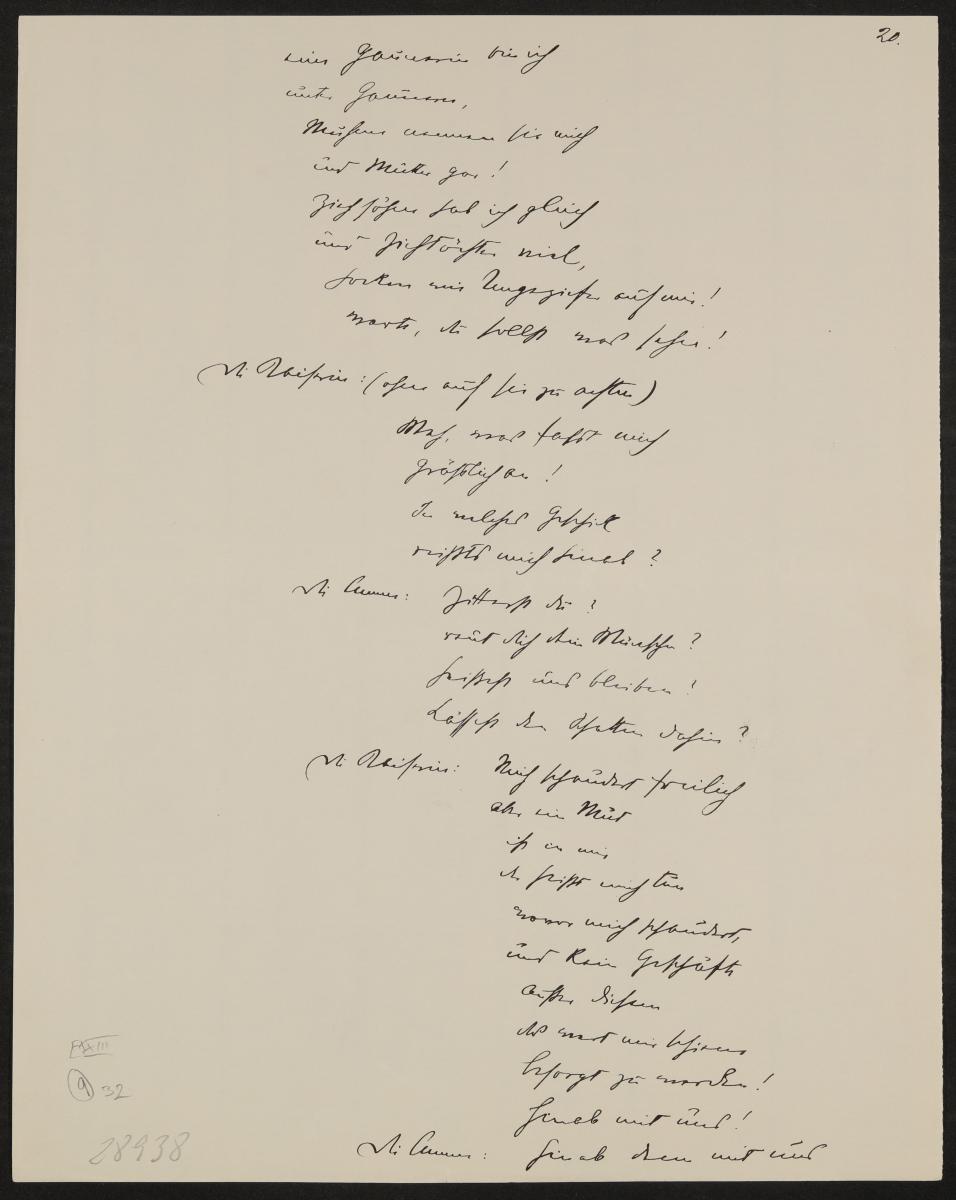 20.
eine Gaunerin bin ich
unter Gaunern,
Muhme nennen sie mich
und Mutter gar!
Ziehsöhne hab ich gleich
und Ziehtöchter viel,
hocken wie Ungeziefer auf mir!
warte, du sollst was sehen!
die Kaiserin: (ohne auf sie zu achten)
Weh, was fasst mich
grässlich an!
In welches Geschick
reissts mich hinab?
die Amme: Zitterst du?
reut dich dein Wünschen?
heissest uns bleiben?
Lässest den Schatten dahin?
die Kaiserin: Mich schaudert freilich
aber ein Mut
ist in mir
der heisst mich tun
wovor mich schaudert,
und kein Geschäfte
ausser diesem
das wert mir schiene
besorgt zu werden!
hinab mit uns!
die Amme: hinab denn mit uns
XXIII
9 32
28938